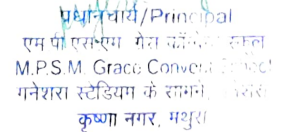 प्रधानाचार्य/Principal
एम पी एस एम ग्रेस
M.P.S.M. Grace Convent
गनेशरा स्टेडियम के सामने,
कृष्णा नगर, मथुरा